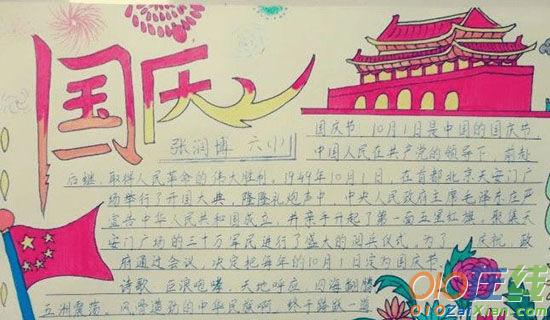 国庆
张润博 六(1)
国庆节 10月1日是中国的国庆节,
中国人民在共产党的领导下,前赴
后继,取得人民革命的伟大胜利,1949年10月1日,在首都北京天安门广
场举行了开国大典,隆隆礼炮声中,中央人民政府主席毛泽东庄严
宣告中华人民共和国成立,并亲手升起了第一面五星红旗,聚集天
安门广场的三十万军民进行了盛大的阅兵仪式,为了 庆祝,政
府通过会议,决定把每年的10月1日定为国庆节。
诗歌 巨浪咆哮,天地呼应,四海翻腾
五洲震荡,风雷激动的中华民族啊 终于踏
在线
ZaiXian.com